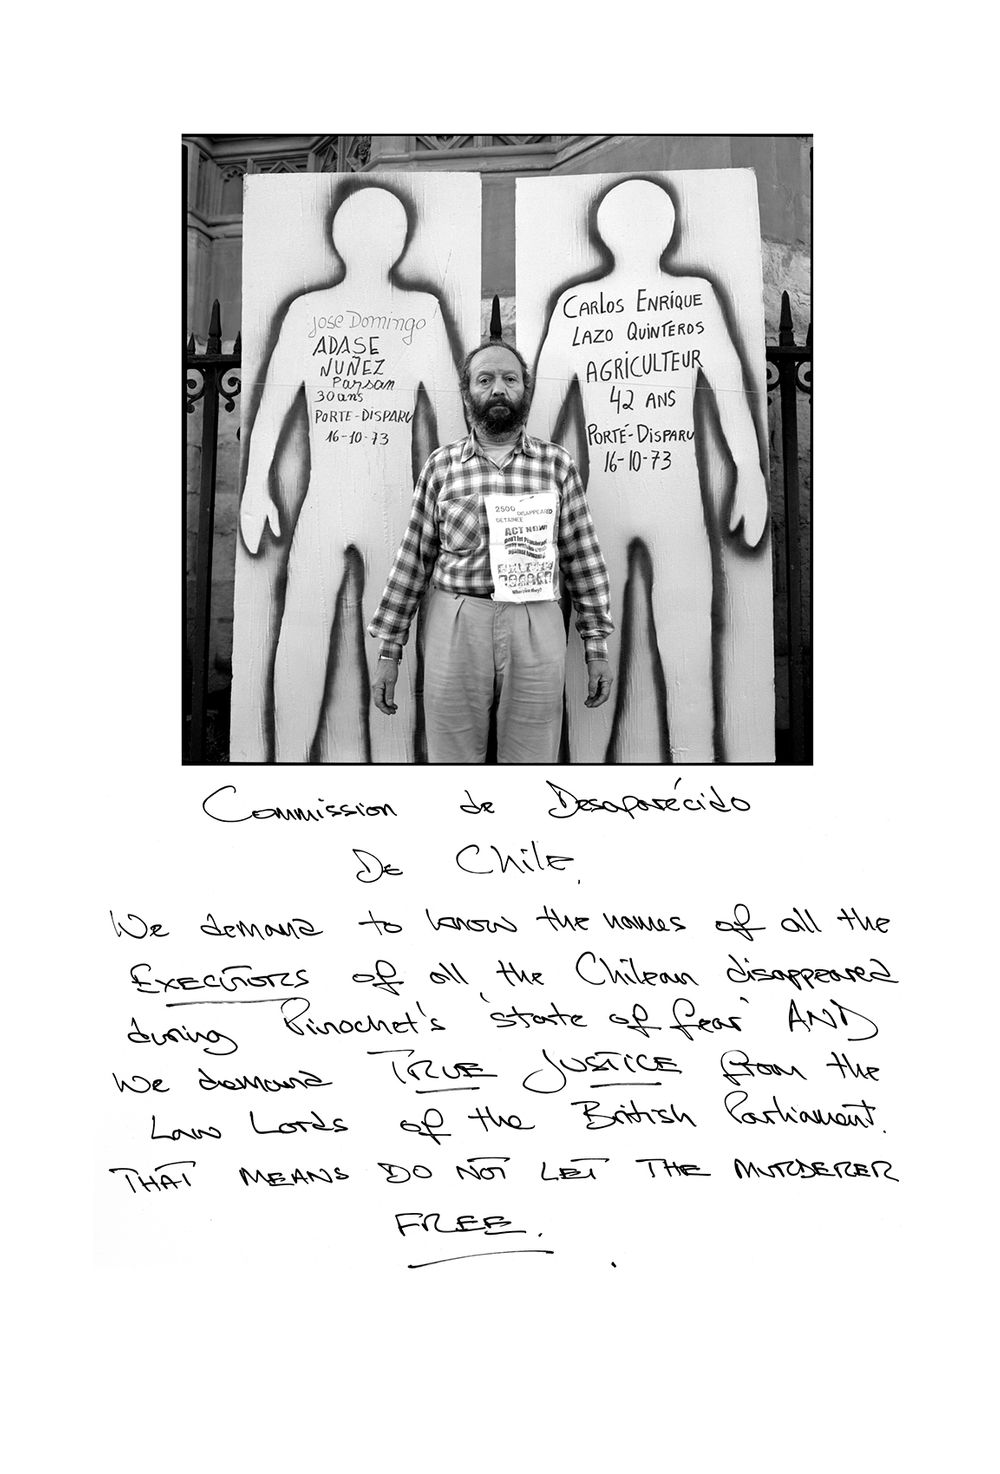 Jose Domingo
ADASE
NUÑEZ
Paysan
30 ans
PORTE-DISPARU
16-10-73
CARLOS ENRIQUE
LAZO QUINTEROS
AGRICULTEUR
42 ANS
PORTÉ-DISPARU
16-10-73
2500 DISAPPEARED
DETAINEE
ACT NOW!
Where are they?
Commission de Desaparécido
De Chile.
We demand to know the names of all the
EXECUTORS of all the Chilean disappeared
during Pinochet's 'state of fear' AND
We demand TRUE JUSTICE from the
Law Lords of the British Parliament.
THAT MEANS DO NOT LET THE MURDERER
FREE.